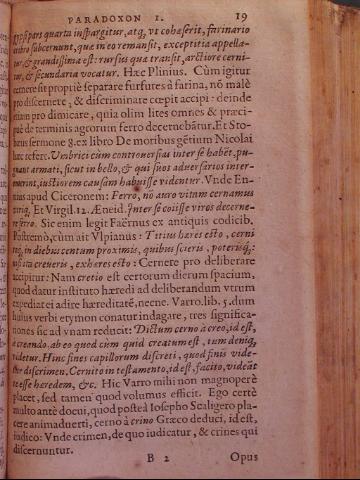 PARADOXON I. 19
gypsi pars quarta inspargitur, atq, vt cohæserit, farinario
cribro subcernunt, quæ in eo remansit, exceptitia appella-
tur, & grandissima est: rursus quæ transit, arctiore cerni-
tur, & secundaria vocatur. Hæc Plinius. Cùm igitur
cernere sit propriè separare furfures à farina, nō malè
pro discernere, & discriminare cœpit accipi: deinde
etiam pro dimicare, quia olim lites omnes & præci-
puè de terminis agrorum ferro decernebātur. Et Sto-
bæus sermone 8. ex libro De moribus gētium Nicolai
hæc refert. Vmbrici cùm controuersias inter se habēt, pu-
gnant armati, sicut in bello, & qui suos aduersarios inter-
emerint, iustiorem causam habuisse videntur. Vnde En-
nius apud Ciceronem: Ferro, nō auro vitam cernamus
Et Virgil. 12. Æneid. Inter se coiisse viros decerne-
re ferro. Sic enim legit Faërnus ex antiquis codicib.
Postremò, cùm ait Vlpianus: Titius hæres esto, cerni-
tóq, in diebus centum proximis, quibus scieris, poterisq;:
nisi ita creueris, exheres esto: Cernere pro deliberare
accipitur: Nam cretio est certorum dierum spacium,
quod datur instituto hæredi ad deliberandum vtrum
expediat ei adire hæreditatē, necne. Varro. lib. 5. dum
huius verbi etymon conatur indagare, tres significa-
tiones sic ad vnam reducit: Dictum cerno à creo, id est,
à creando. ab eo quod cùm quid creatum est, tum deniq,
videtur. Hinc fines capillorum discreti, quod finis vide-
tur discrimen. Cernito in testamento, id est, facito, videāt
te esse hæredem, &c. Hîc Varro mihi non magnoperè
placet, sed tamen quod volumus efficit. Ego certè
multo antè docui, quod posteà Iosepho Scaligero pla-
cere animaduerti, cerno à crino Græco deduci, id est,
iudico: Vnde crimen, de quo iudicatur, & crines qui
discernuntur.
B 2 Opus